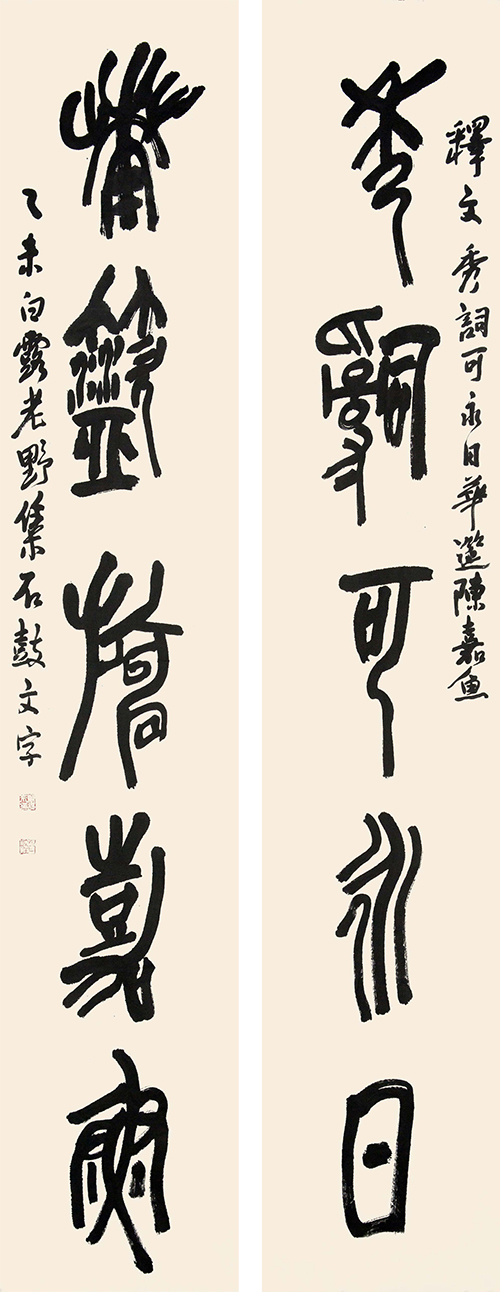 釋文秀詞可永日華筵陳嘉魚
秀詞可永日
華筵陳嘉魚
乙未白露老野集石鼓文字